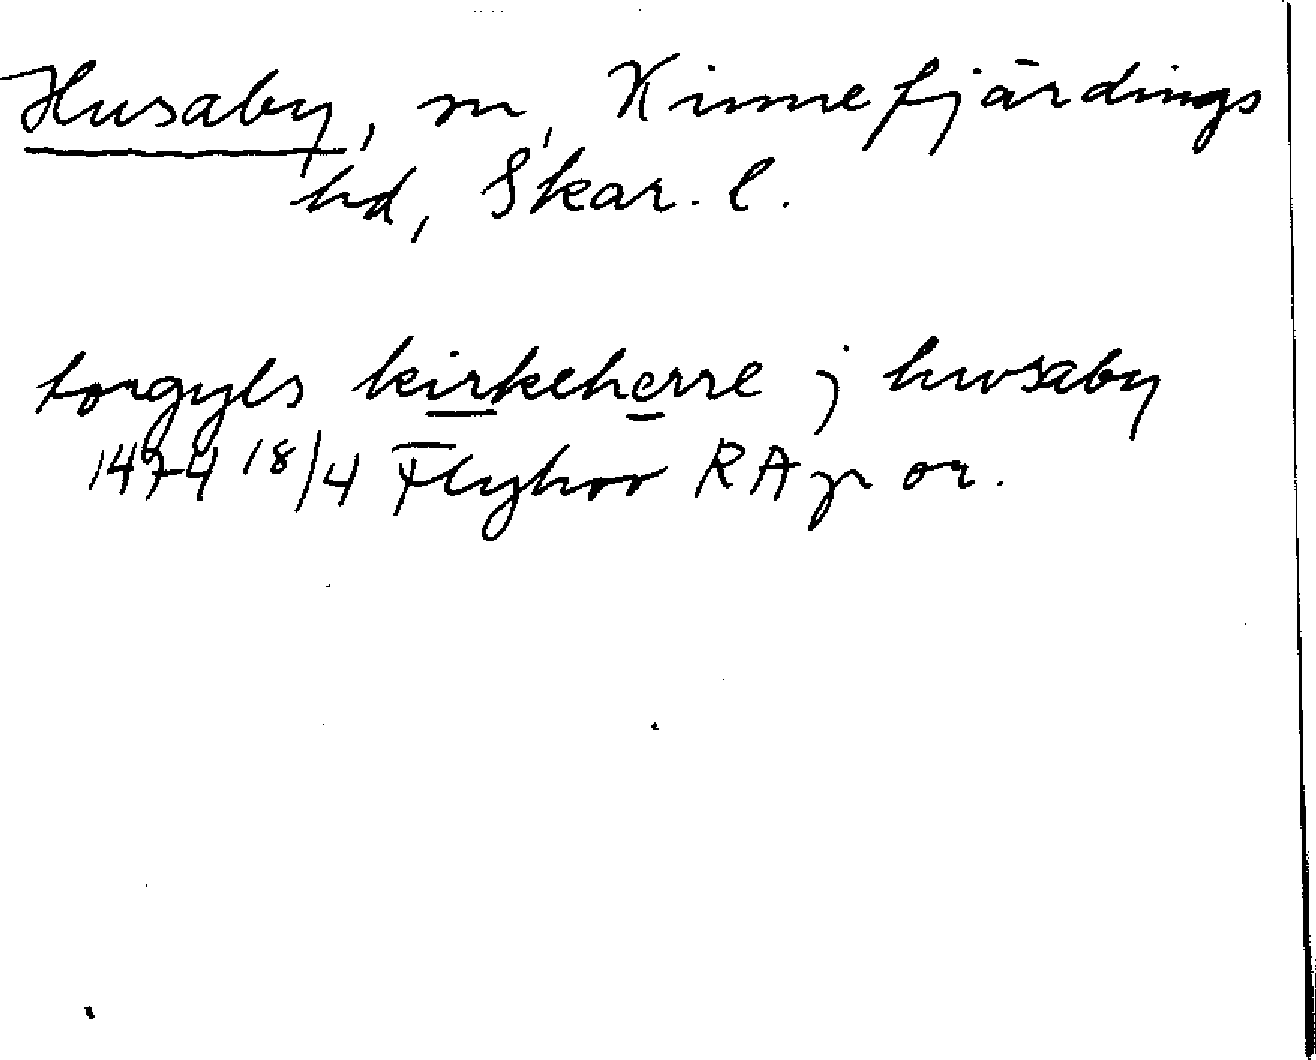 Husaby, sn, Kinnefjärdings
hd, Skar. l.
torgyls kirkeherre j hwsaby
1474 18/4 Flyhov RA p or.